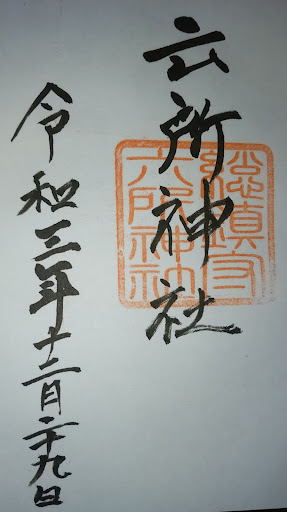 六所神社
總鎮守
六所神社
令和三年十二月二十九日